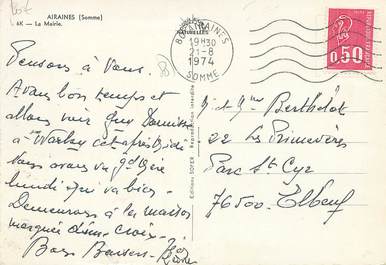 AIRAINES (Somme)
6K — La Mairie.
NATURELLES
AIRAINES
19H30
21-8
1974
SOMME
0,50
Pensons à Vous.
Avons bon temps et
allons voir Guy
à Warlus cet après midi
Vous avons vu gd Père
lundi qui va bien.
Demeurons à la maison
marquée d'une croix.
Bons Baisers
Editions SOFER
Reproduction interdite
M & Mme Berthelot
22 Les Primevères
Parc St Cyr
76500 Elbeuf